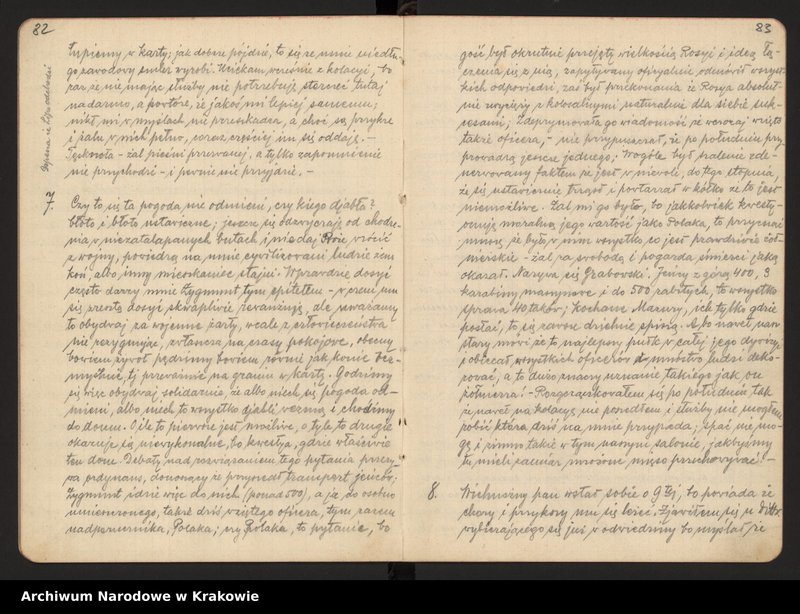 82
łupiemy w karty; jak dobrze pójdzie, to się ze mnie niedłu-
go zawodowy szuler wyrobi. Uciekam wcześnie z kolacyi, bo
raz że nie mając służby nie potrzebuję sterczeć tutaj
nadarmo, a powtóre, że jakoś mi lepiej samemu;
nikt mi w myślach nie przeszkadza, a choć są przykre
i żalu w nich pełno, coraz częściej im się oddaję. —
Tęsknota - żal pieśni przerwanej, a tylko zapomnienie
nie przychodzi - i pewnie nie przyjdzie. —
7. Czy to się ta pogoda nie odmieni, czy kiego djabła?
Błoto i błoto ustawiczne; jeszcze się odzwyczaję od chodze-
nia w niezatapanych butach i niedaj Boże wrócić
z wojny, powiedzą na mnie cywilizowani ludzie żem
koń, albo inny mieszkaniec stajni. Wprawdzie dosyć
często darzy mnie Zygmunt tym epitetem - w czem mu
się zresztą dosyć skrzętnie rewanżuję, ale uważamy
to obydwaj za wojenne żarty, wcale z człowieczeństwa
nie rezygnując, zwłaszcza na czasy pokojowe, obecny
bowiem żywot pędzimy bowiem równie jak konie bez-
myślnie, tj przeważnie na graniu w karty. Godzimy
się więc obydwaj solidarnie, że albo niech się pogoda od-
mieni, albo niech to wszystko djabli wezmą i chodźmy
do domu. O ile to pierwsze jest możliwe, o tyle to drugie
okazuje się niewykonalne, bo kwestya, gdzie właściwie
ten dom. Debaty nad rozwiązaniem tego pytania przery-
wa ordynans, donosząc że przyszedł transport jeńców;
Zygmunt idzie więc do nich (ponad 500), a ja do osobno
umieszczonego, także dziś wziętego oficera, tym razem
nadporucznika, Polaka; czy Polaka, to pytanie, bo
83
gość był okrutnie przejęty wielkością Rosyi i ideą łą-
czenia się z nią, zapytywany oficyalnie odmówił wszyst-
kich odpowiedzi, zaś był przekonania że Rosya absolut-
nie zwycięży z kolosalnymi naturalnie dla siebie suk-
cesami; zaintrygowała go wiadomość że wczoraj wzięto
także oficera, - nie przypuszczał, że po południu przy-
prowadzą jeszcze jednego; Wogóle był szalenie zde-
nerwowany faktem że jest w niewoli, do tego stopnia,
że się ustawicznie trząsł i powtarzał w kółko że to jest
niemożliwe. Żal mi go było, bo jakkolwiek kwesty-
onuję moralną jego wartość jako Polaka, to przyznać
muszę że było w nim wszystko co jest prawdziwie żoł-
nierskie - żal za swobodą i pogarda śmierci jaką
okazał. Nazywa się Grabowski. Jeńcy z górą 400, 3
karabiny maszynowe i do 500 zabitych, to wszystko
sprawa 40 taków; kochane Mazury, ich tylko gdzie
posłać, to się zawsze dzielnie spiszą. A bo nawet nasz
stary mówi że to najlepszy pułk w całej jego dywizyi
i obiecał wszystkich oficerów i mnóstwo ludzi deko-
rować, a to dużo znaczy uznanie takiego jak on
żołnierza! - Rozgorączkowałem się po południu tak
że nawet na kolacyę nie poszedłem i służby nie mogłem
robić która dziś na mnie przypada; spać nie mo-
gę i zimno także w tym naszym salonie, jakbyśmy
tu mieli zamiar mrożone mięso przechowywać! —
8. Wielmożny pan wstał sobie o 9 tej, bo powiada że
chory i przykry mu się leżeć. Zjawiłem się u
wybierającego się już w odwiedziny bo myślał że
Archiwum Narodowe w Krakowie